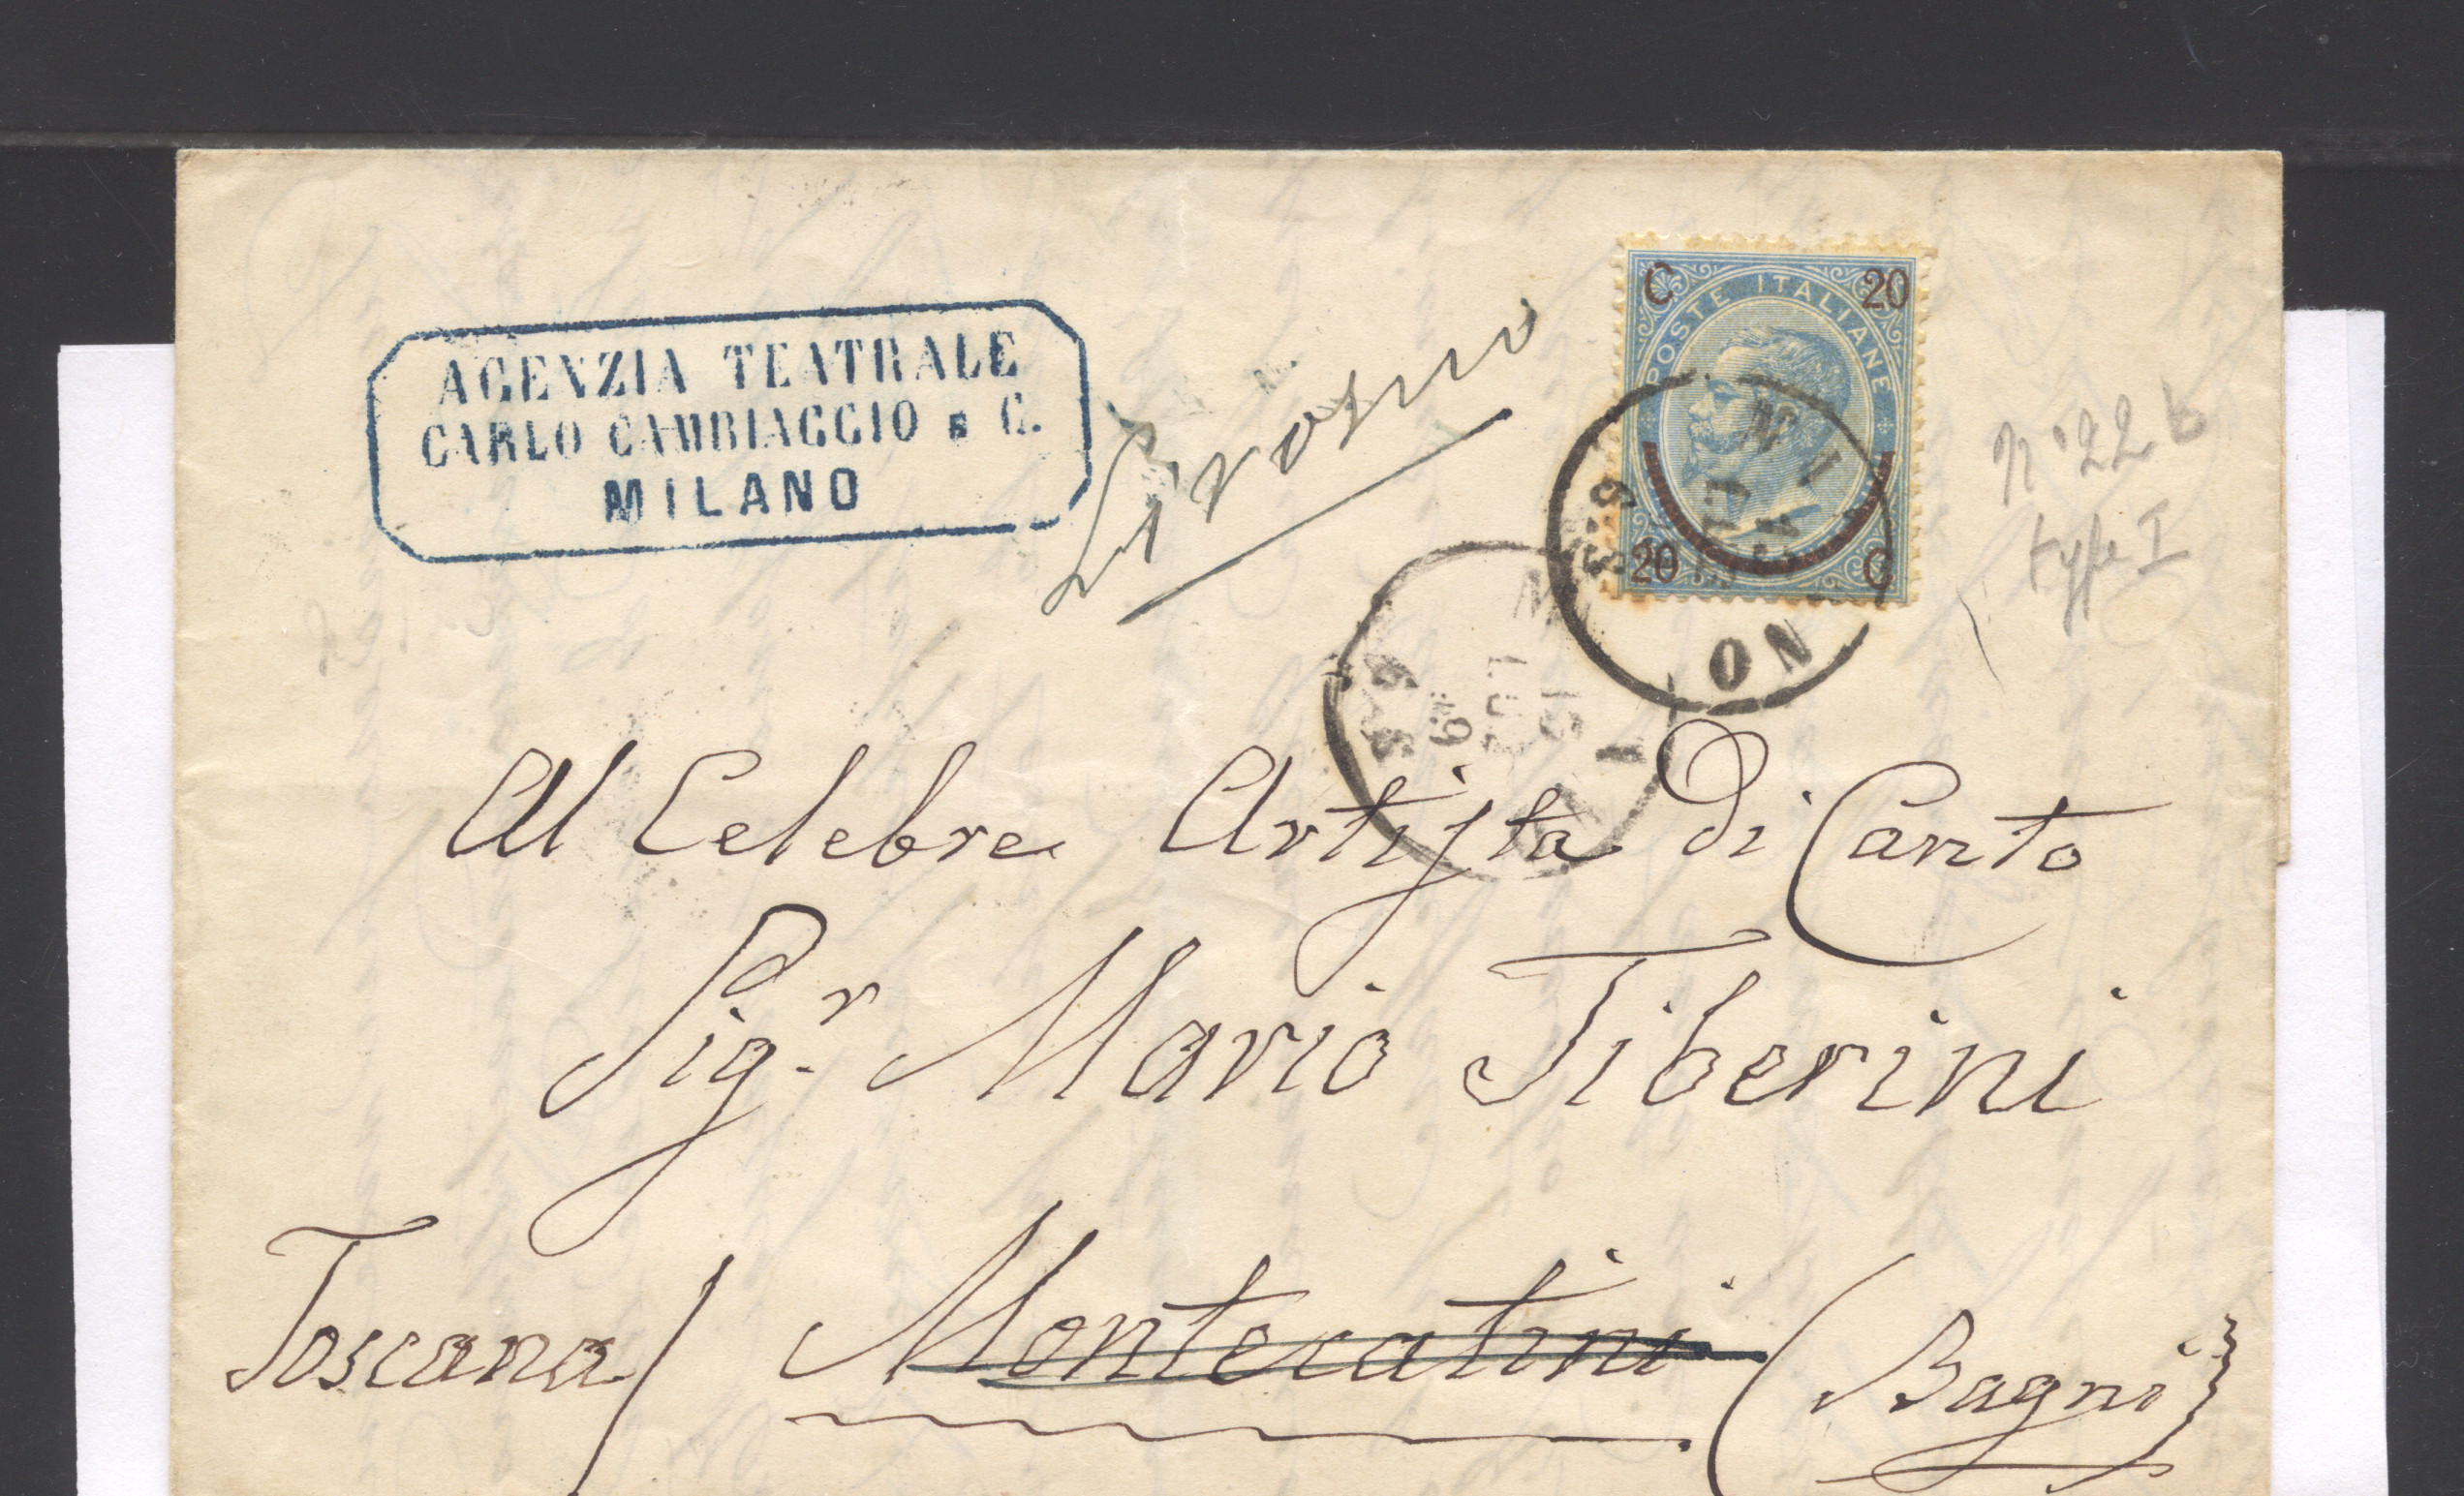 AGENZIA TEATRALE
CARLO CAMBIAGGIO E C.
MILANO
Livorno
C 20
POSTE ITALIANE
20 C
nº 22 b
type I
Al Celebre Artista di Canto
Sigr. Mario Tiberini
Toscana / Montecatini (Bagni)